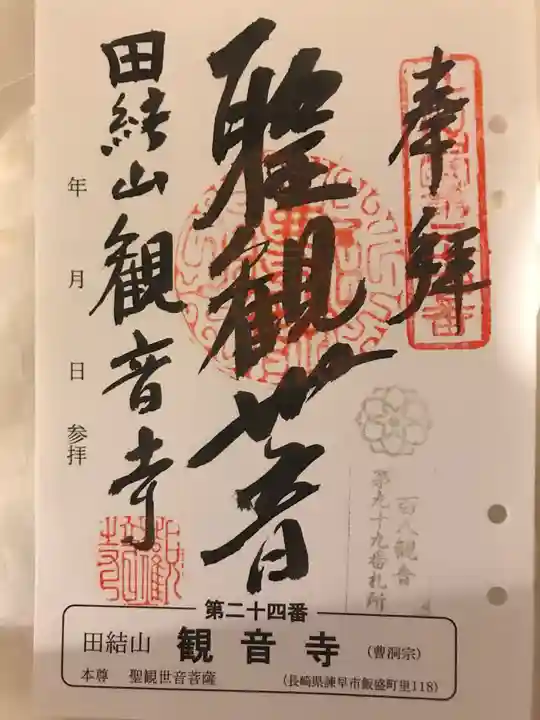 奉拝
聖観世音
田結山観音寺
年 月 日 参拝
百八観音
第九十九番札所
第二十四番
田結山 観音寺 (曹洞宗)
本尊 聖観世音菩薩 (長崎県諫早市飯盛町里118)